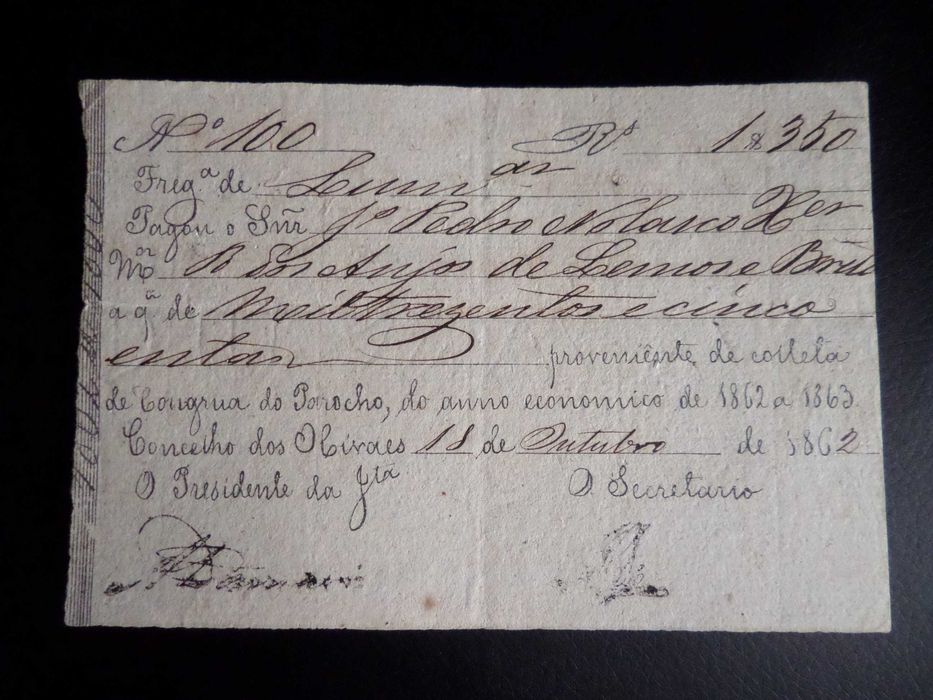 Nº 100 Rs 1$350
Fregª de Lumiar
Pagou o Snr Jº Pedro Nolasco Xer
Mor R dos Anjos de Lemos e
a qª de Mil trezentos e cinco
entas proveniente de colleta
de Congrua do Parocho, do anno economico de 1862 a 1863
Concelho dos Olivaes 18 de Outubro de 1862
O Presidente da Jta O Secretario